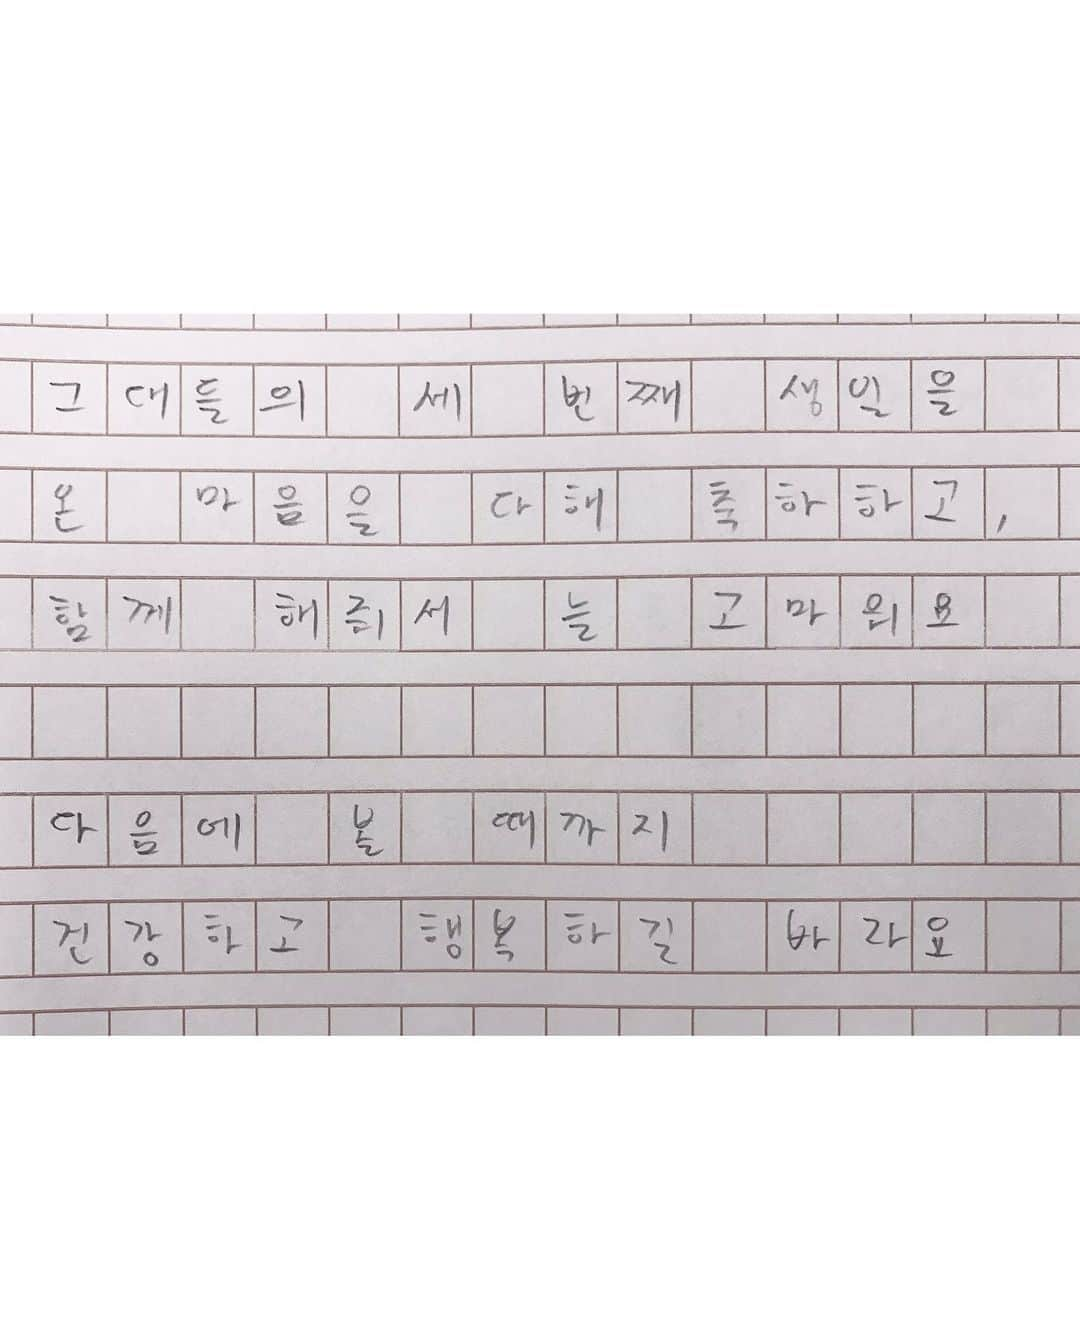 그대들의 세 번째 생일을
온 마음을 다해 축하하고,
함께 해줘서 늘 고마워요
다음에 볼 때까지
건강하고 행복하길 바라요